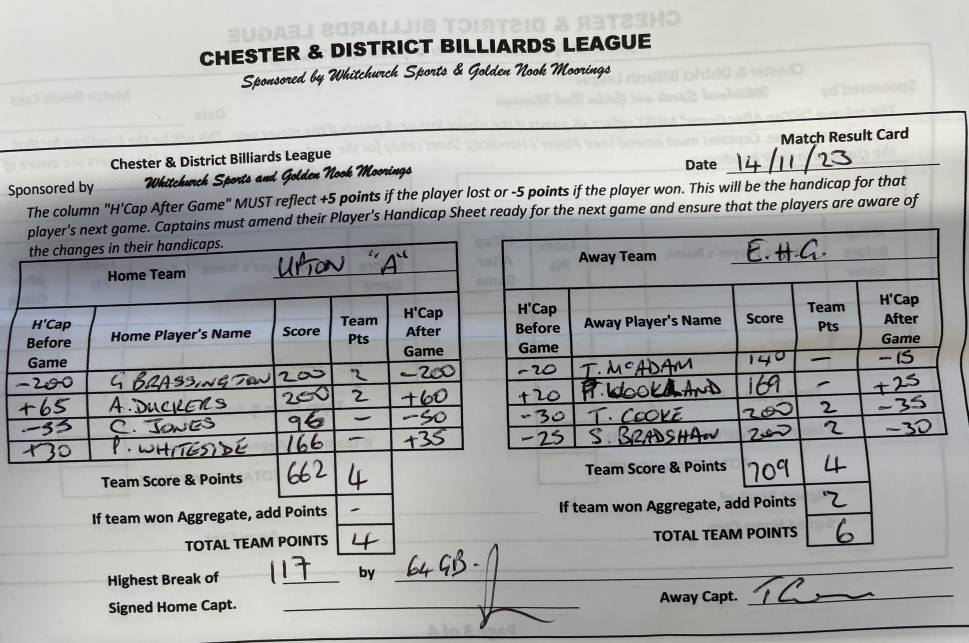 CHESTER & DISTRICT BILLIARDS LEAGUE
Sponsored by Whitchurch Sports & Golden Nook Moorings
Match Result Card
Chester & District Billiards League
Date 14/11/23
Sponsored by Whitchurch Sports and Golden Nook Moorings
The column "H'Cap After Game" MUST reflect +5 points if the player lost or -5 points if the player won. This will be the handicap for that
player's next game. Captains must amend their Player's Handicap Sheet ready for the next game and ensure that the players are aware of
the changes in their handicaps.
Home Team UPTON "A"
H'Cap Before Game Home Player's Name Score Team Pts H'Cap After Game
-200 G BRASSINGTON 200 2 -200
+65 A. DUCKERS 200 2 +60
-55 C. JONES 96 - -50
+30 P. WHITESIDE 166 - +35
Team Score & Points 662 4
If team won Aggregate, add Points -
TOTAL TEAM POINTS 4
Away Team E.H.G.
H'Cap Before Game Away Player's Name Score Team Pts H'Cap After Game
-20 T. McADAM 140 - -15
+20 WOODLAND 169 - +25
-30 T. COOKE 200 2 -35
-25 S. BRADSHAW 200 2 -30
Team Score & Points 709 4
If team won Aggregate, add Points 2
TOTAL TEAM POINTS 6
Highest Break of 117 by 64 GB.
Signed Home Capt.
Away Capt.